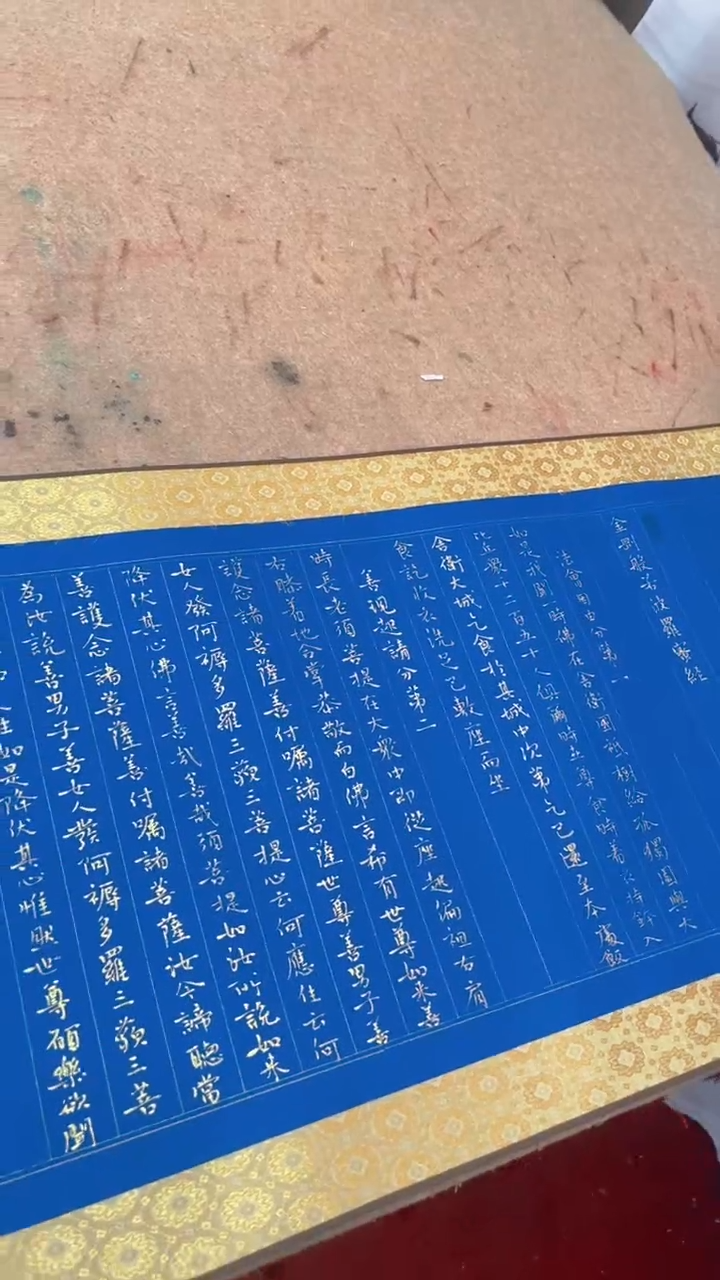 金剛般若波羅蜜經
法會因由分第一
如是我聞一時佛在舍衛國祇樹給孤獨園與大
比丘眾千二百五十人俱爾時世尊食時著衣持鉢入
舍衛大城乞食於其城中次第乞已還至本處飯
食訖收衣洗足已敷座而坐
善現起請分第二
時長老須菩提在大眾中即從座起偏袒右肩
右膝著地合掌恭敬而白佛言希有世尊如來善
護念諸菩薩善付囑諸菩薩世尊善男子善
女人發阿耨多羅三藐三菩提心云何應住云何
降伏其心佛言善哉善哉須菩提如汝所說如來
善護念諸菩薩善付囑諸菩薩汝今諦聽當
為汝說善男子善女人發阿耨多羅三藐三菩
如是降伏其心惟然世尊願樂欲聞